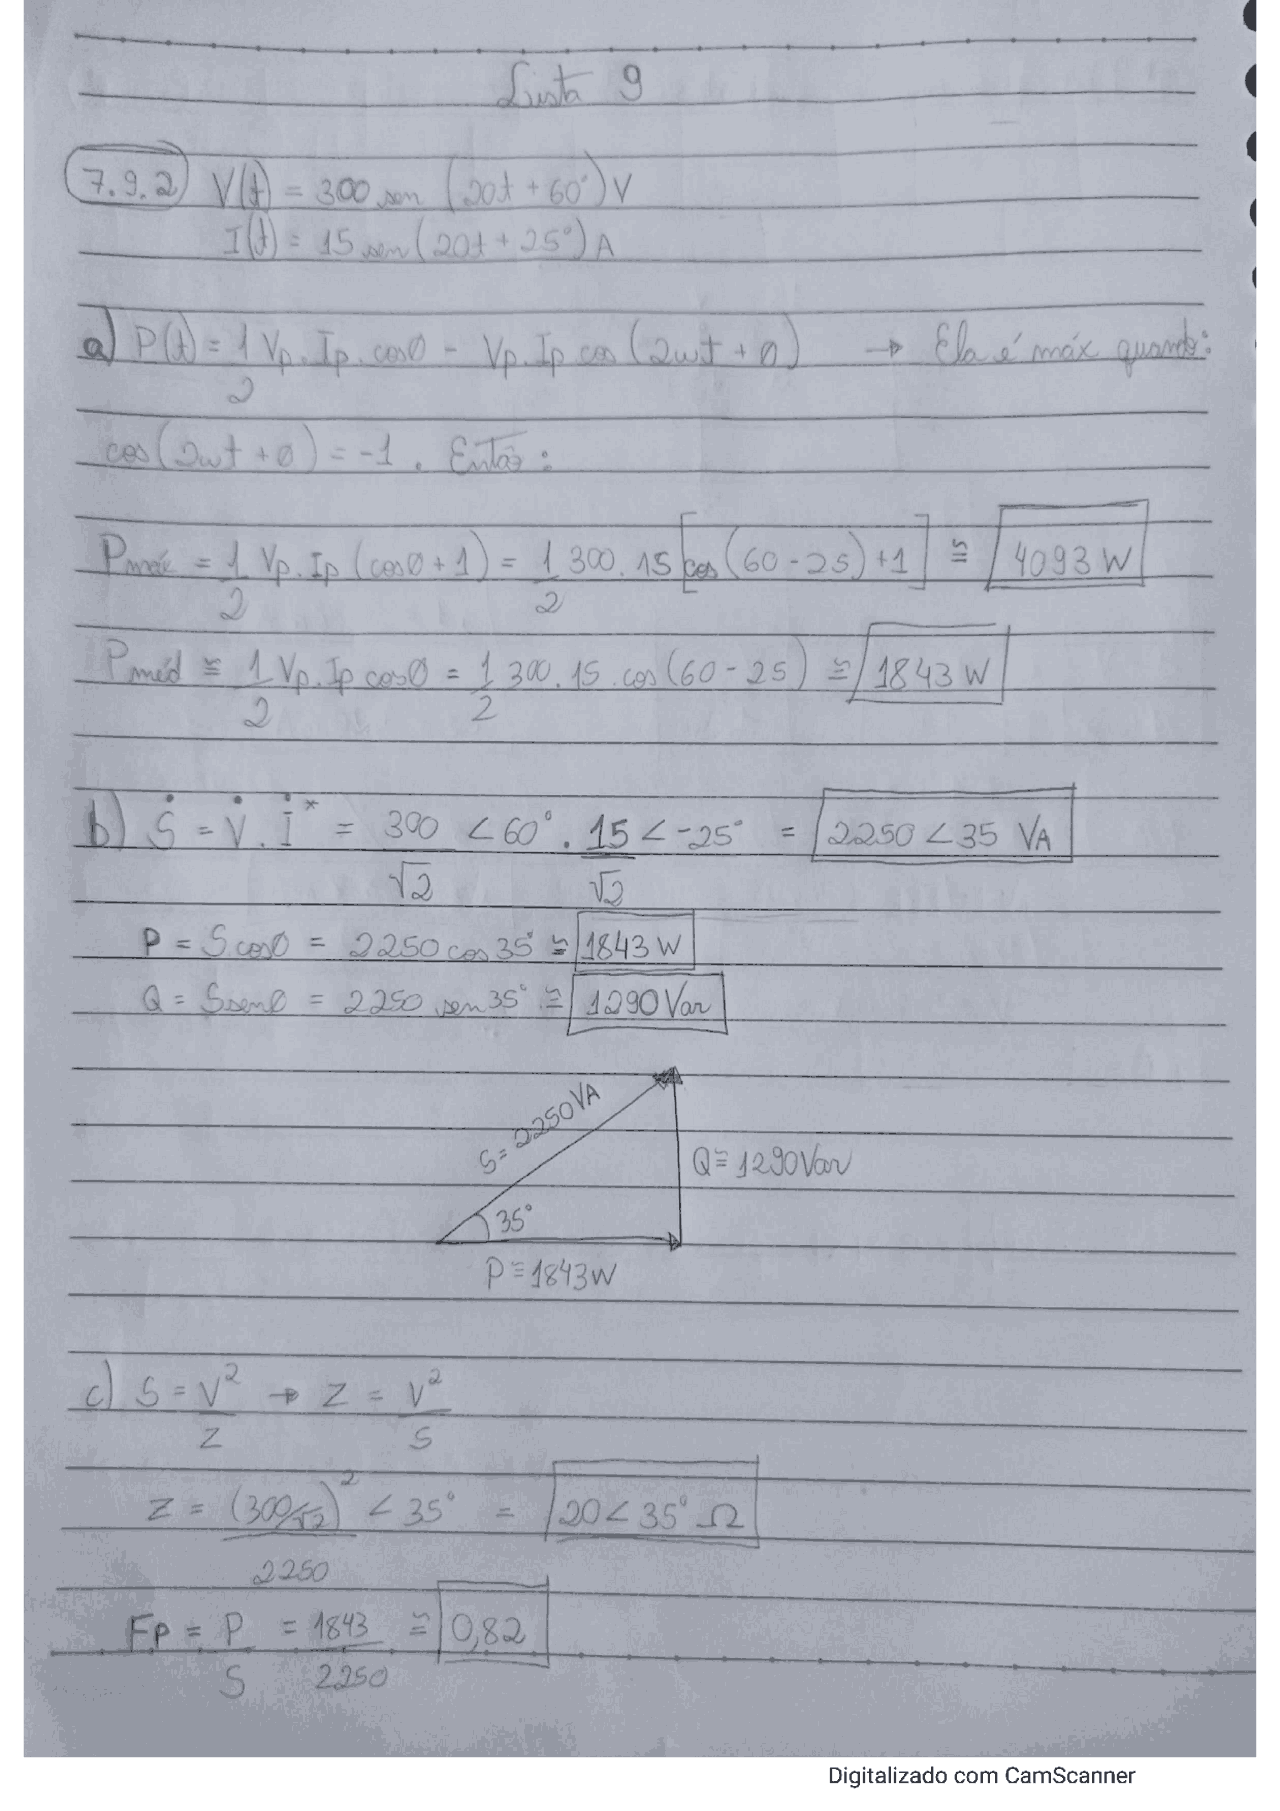 Lista 9
7.9.2 V(t) = 300 sen (20t + 60°) V
I(t) = 15 sen (20t + 25°) A
a) P(t) = 1/2 Vp . Ip . cosø - Vp . Ip cos (2wt + ø) → Ela é máx quando:
cos (2wt + ø) = -1 . Então:
Pmáx = 1/2 Vp . Ip (cosø + 1) = 1/2 300 . 15 [cos (60 - 25) + 1] ≅ 4093 W
Pméd ≅ 1/2 Vp . Ip cosø = 1/2 300 . 15 . cos (60 - 25) ≅ 1843 W
b) Ṡ = V̇ . İ* = 300/√2 < 60° . 15/√2 < -25° = 2250 < 35 VA
P = S cosø = 2250 cos 35° ≅ 1843 W
Q = S senø = 2250 sen 35° ≅ 1290 Var
S = 2250 VA
Q ≅ 1290 Var
35°
P ≅ 1843 W
c) S = V²/Z → Z = V²/S
Z = (300/√2)²/2250 < 35° = 20 < 35° Ω
Fp = P/S = 1843/2250 ≅ 0,82
Digitalizado com CamScanner